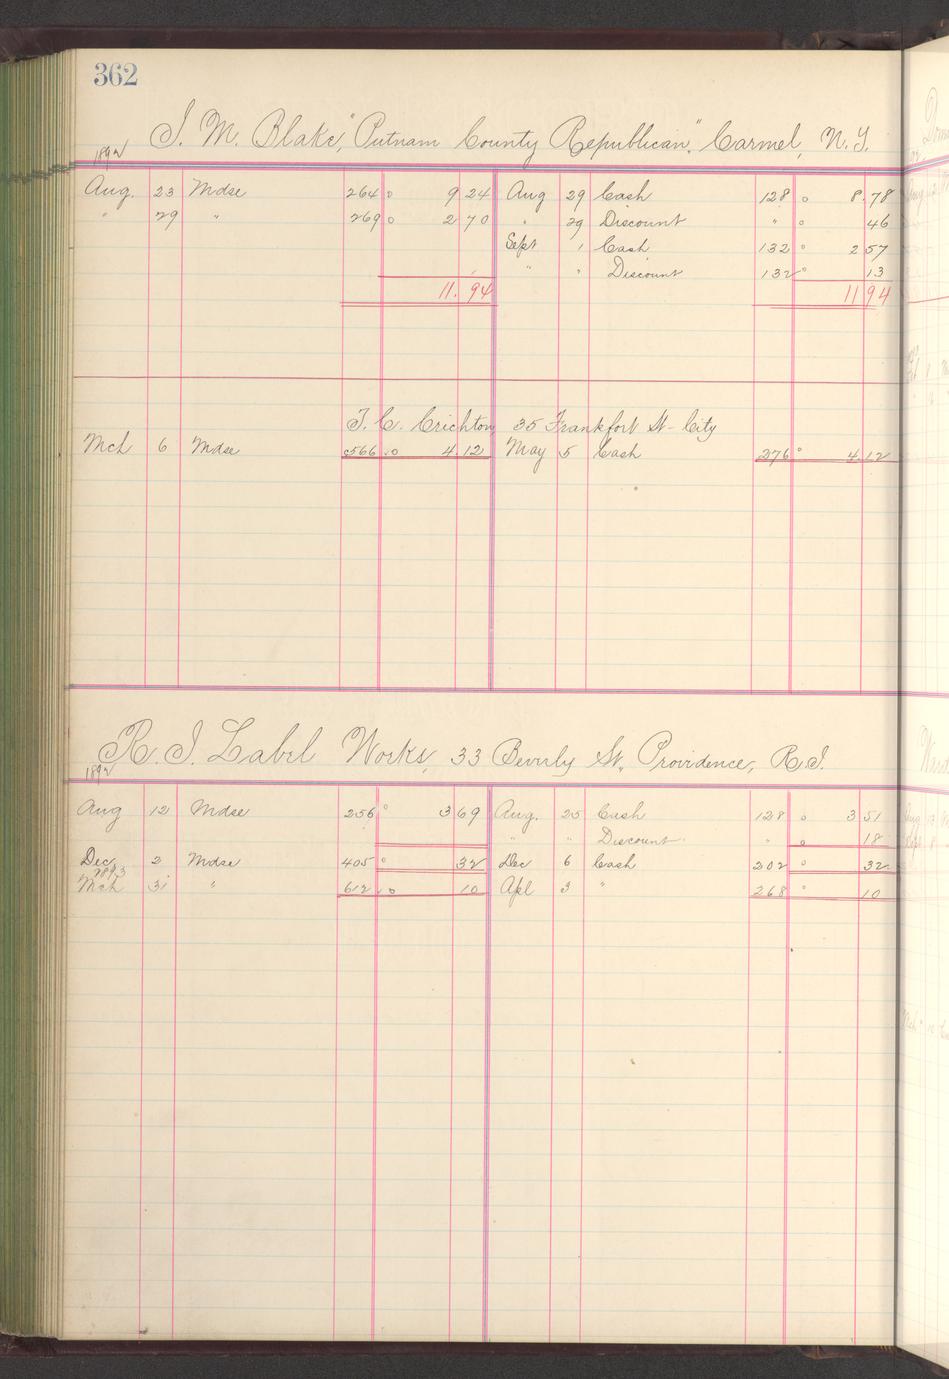 362
I. M. Blake, "Putnam County Republican," Carmel, N.Y.
1892
Aug. 23 Mdse 264 9 24 Aug 29 Cash 128 8.78
" 29 " 269 2 70 " 29 Discount " 46
Sept 1 Cash 132 2 57
" " Discount 132 13
11.94 11 94
T. C. Crichton, 35 Frankfort St - City
Mch 6 Mdse 566 4.12 May 5 Cash 276 4.12
R. I. Label Works, 33 Beverly St, Providence, R.I.
1892
Aug 12 Mdse 256 3 69 Aug. 25 Cash 128 3 51
" " Discount " 18
Dec. 2 Mdse 405 32 Dec 6 Cash 202 32
1893
Mch 31 " 612 10 Apl 3 " 268 10